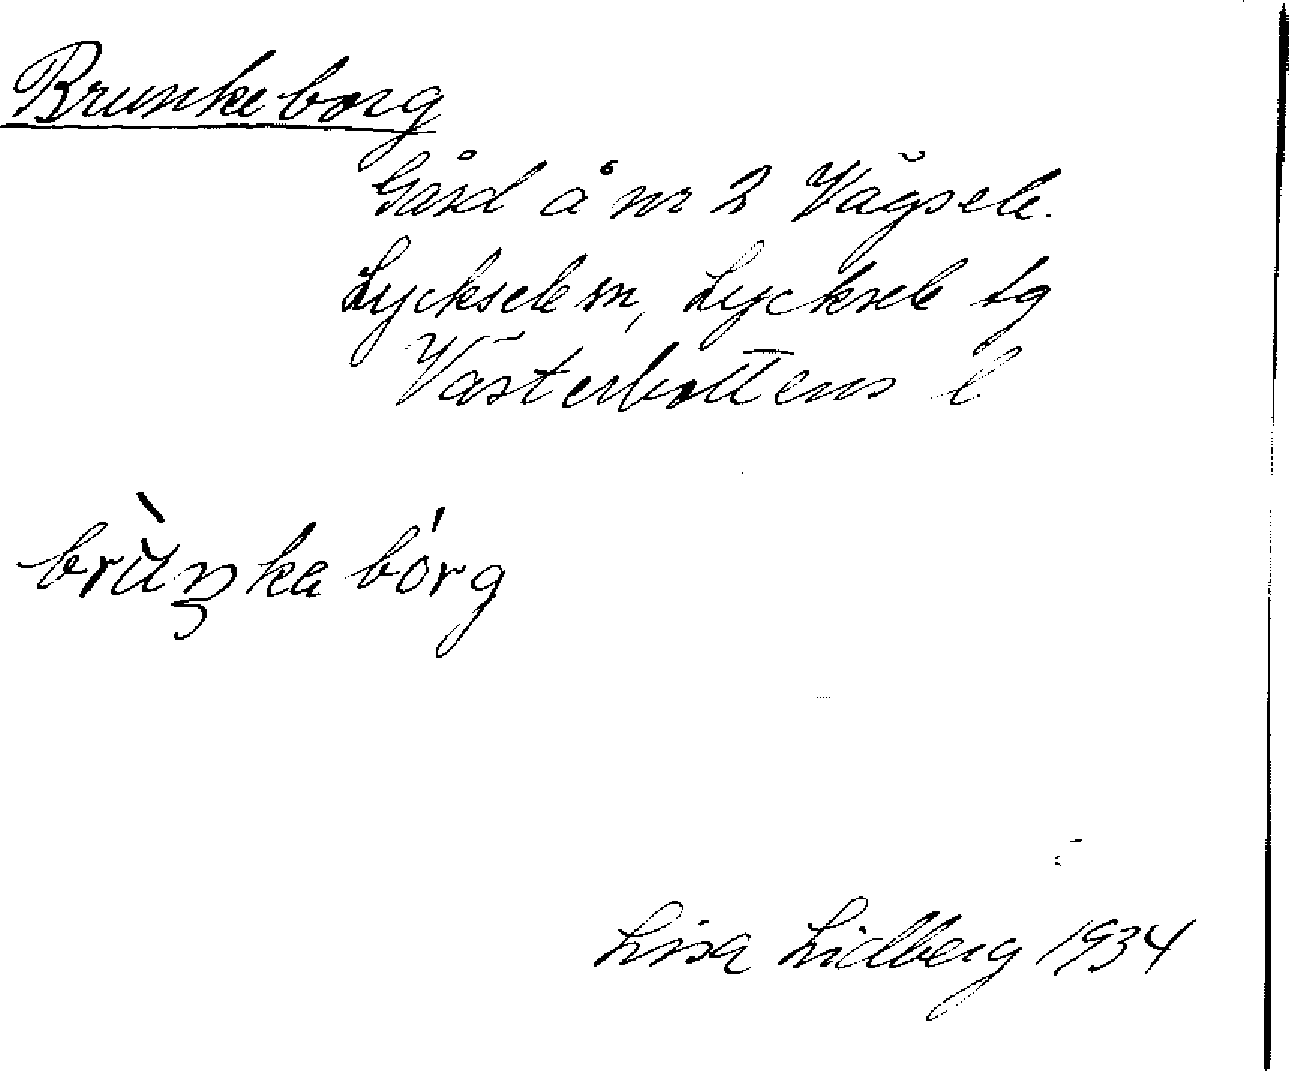 Brunkeborg
Gård å nr 2 Vägsele.
Lycksele sn, Lycksele tg
Västerbottens l
brùŋka bórg
Lisa Lidberg 1934